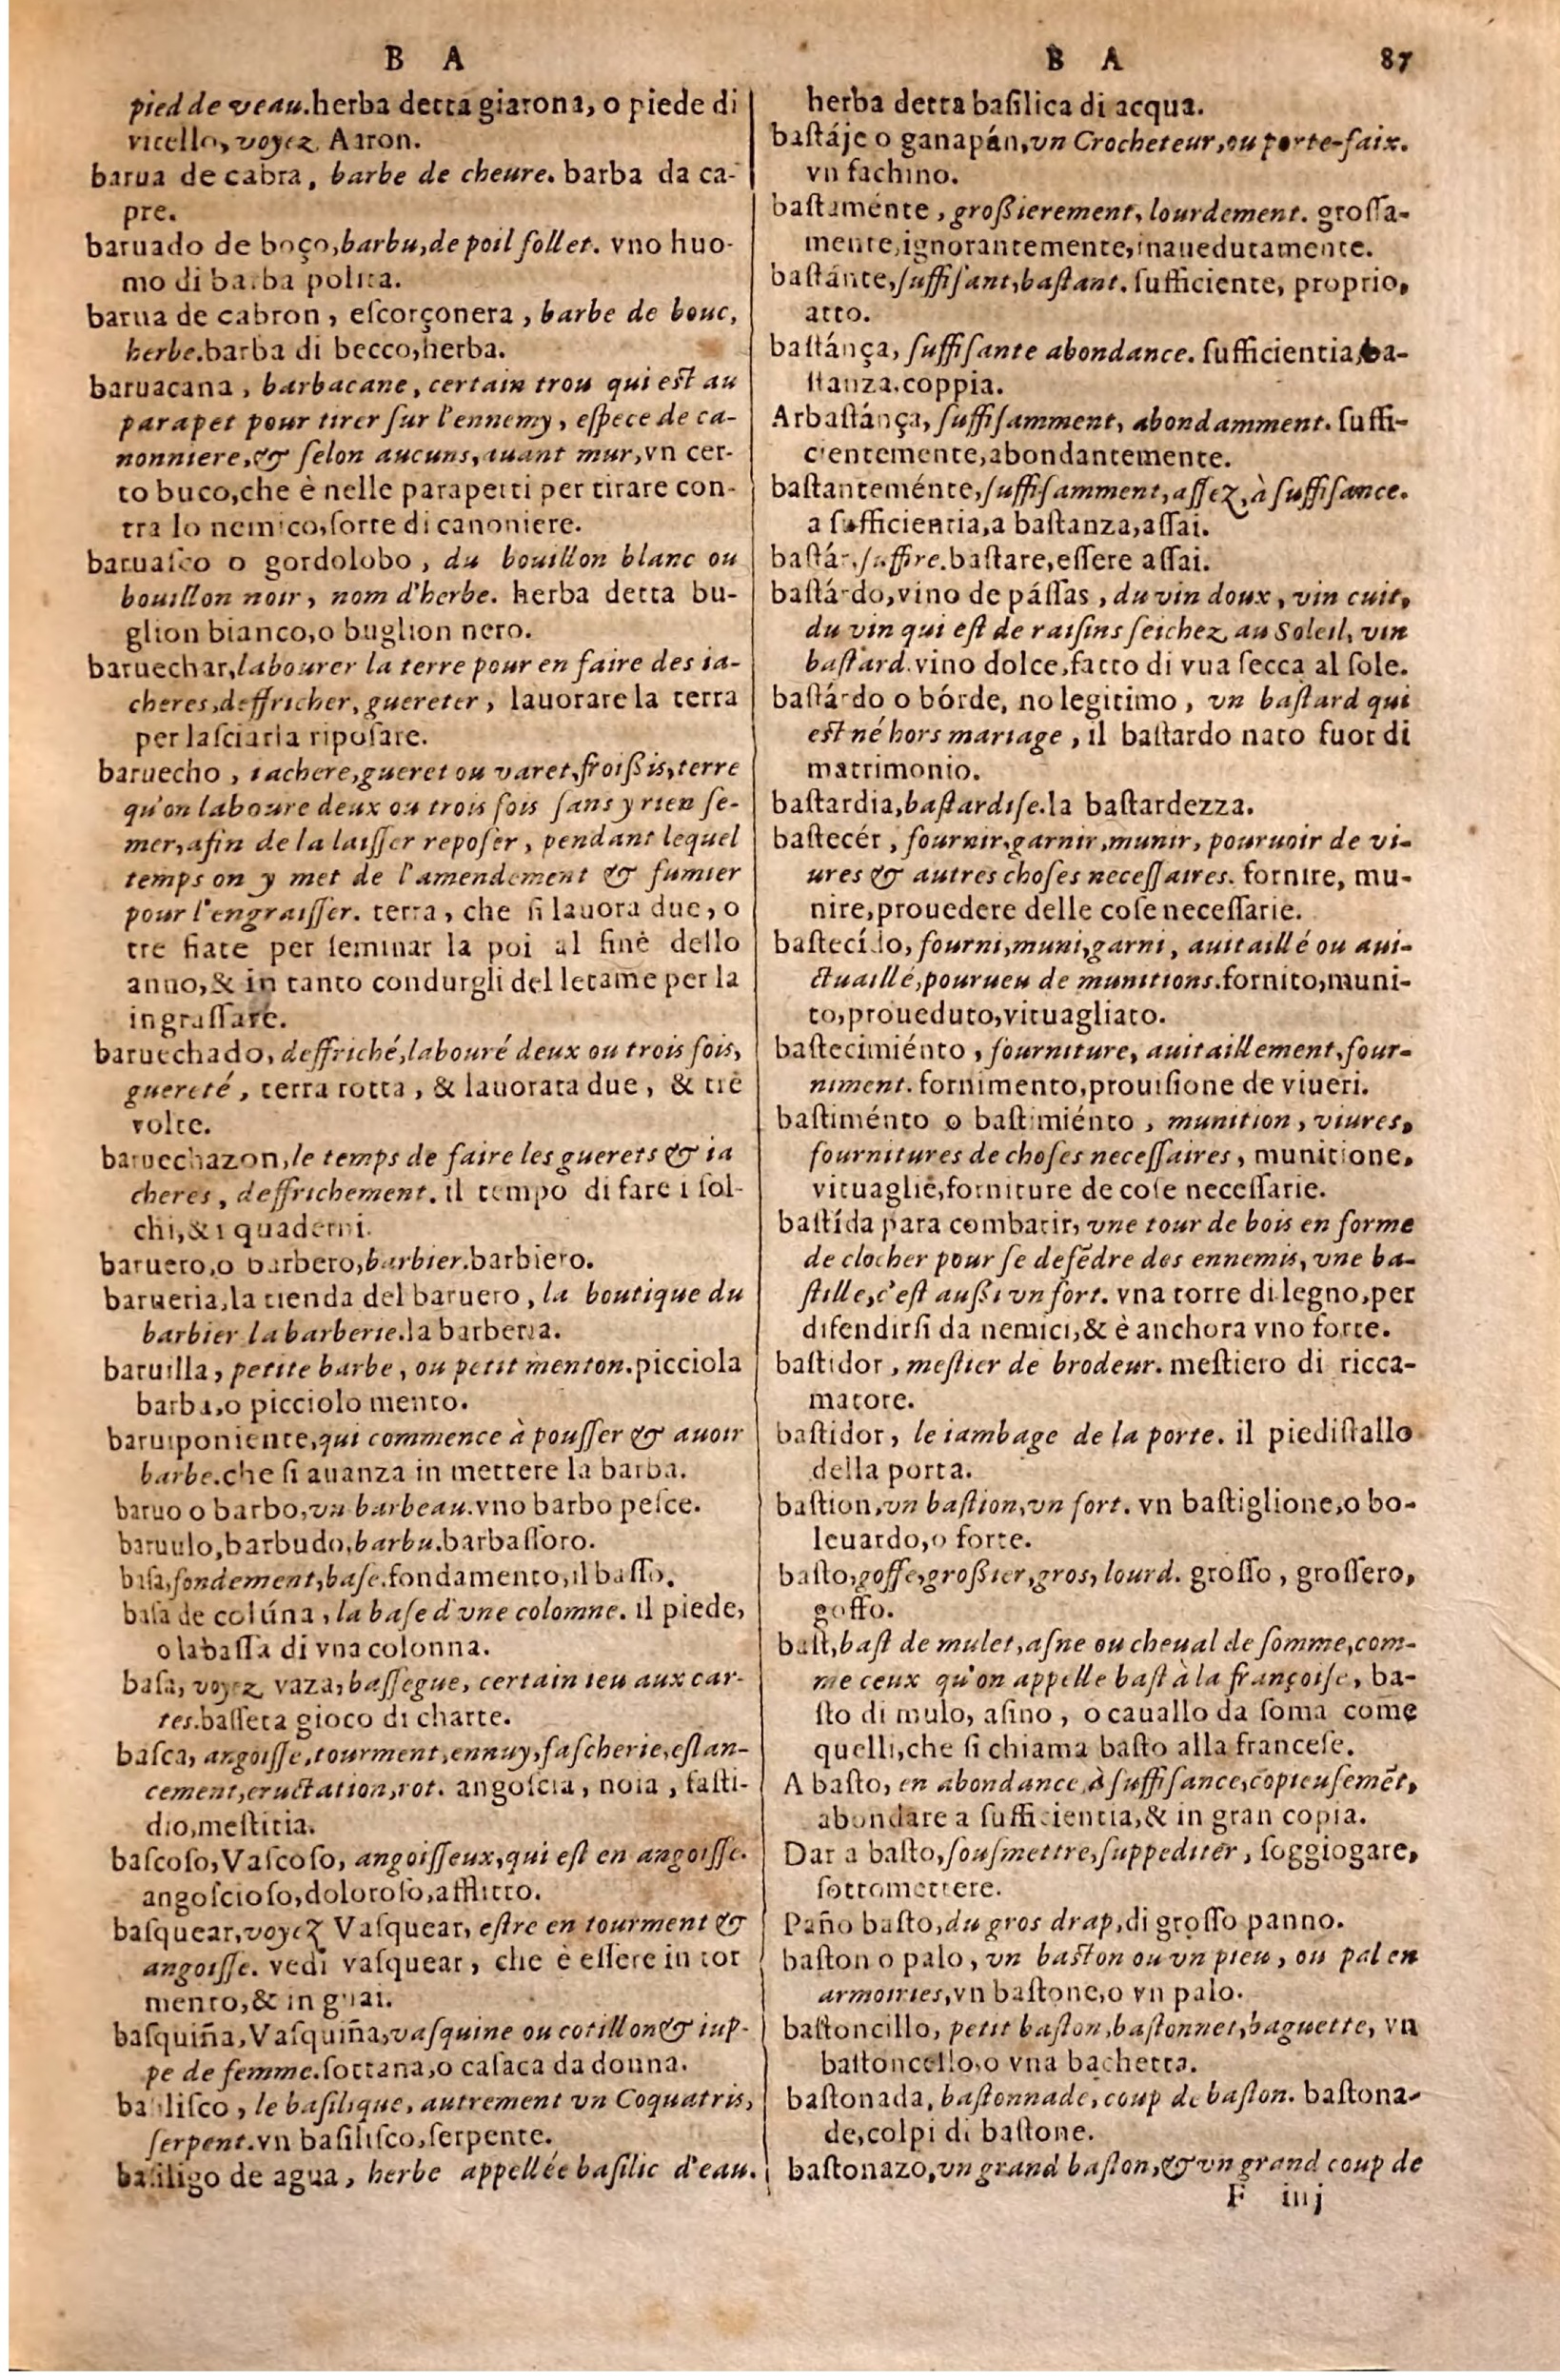 B A
pied de veau.herba detta giarona, o piede di
vitello, voyez Aaron.
barua de cabra, barbe de cheure. barba da ca-
pre.
baruado de boço,barbu,de poil follet. vno huo-
mo di barba polita.
barua de cabron, eſcorçonera, barbe de bouc,
herbe.barba di becco,herba.
baruacana, barbacane, certain trou qui eſt au
parapet pour tirer ſur l'ennemy, eſpece de ca-
nonniere,& ſelon aucuns,auant mur,vn cer-
to buco,che è nelle parapetti per tirare con-
tra lo nemico,ſorte di canoniere.
baruaſco o gordolobo, du bouillon blanc ou
bouillon noir, nom d'herbe. herba detta bu-
glion bianco,o buglion nero.
baruechar,labourer la terre pour en faire des ia-
cheres,deffricher, guereter, lauorare la terra
per laſciarla ripoſare.
baruecho, iachere,gueret ou varet,froißis,terre
qu'on laboure deux ou trois fois ſans y rien ſe-
mer,afin de la laiſſer repoſer, pendant lequel
temps on y met de l'amendement & fumier
pour l'engraiſſer. terra, che ſi lauora due, o
tre fiate per ſeminar la poi al finè dello
anno,& in tanto condurgli del letame per la
ingraſſare.
baruechado, deffriché,labouré deux ou trois fois,
guereté, terra rotta, & lauorata due, & trè
volte.
baruechazon,le temps de faire les guerets & ia
cheres, deffrichement. il tempo di fare i ſol-
chi,& i quaderni.
baruero,o barbero,barbier.barbiero.
barueria,la tienda del baruero, la boutique du
barbier la barberie.la barberia.
baruilla, petite barbe, ou petit menton.picciola
barba,o picciolo mento.
baruiponiente,qui commence à pouſſer & auoir
barbe.che ſi auanza in mettere la barba.
baruo o barbo,vn barbeau.vno barbo peſce.
baruulo,barbudo,barbu.barbaſſoro.
baſa,fondement,baſe.fondamento,il baſſo.
baſa de colúna, la baſe d'vne colomne. il piede,
o la baſſa di vna colonna.
baſa, voyez vaza,baſſegue, certain ieu aux car-
tes.baſſeta gioco di charte.
baſca, angoiſſe,tourment,ennuy,faſcherie,eſlan-
cement,eructation,rot. angoſcia, noia, faſti-
dio,meſtitia.
baſcoſo,Vaſcoſo, angoiſſeux,qui eſt en angoiſſe.
angoſcioſo,doloroſo,afflitto.
baſquear,voyez Vaſquear, eſtre en tourment &
angoiſſe. vedi vaſquear, che è eſſere in tor
mento,& in guai.
baſquiña,Vaſquiña,vaſquine ou cotillon & iup-
pe de femme.ſottana,o caſaca da donna.
baſiliſco, le baſilique, autrement vn Coquatris,
ſerpent.vn baſiliſco,ſerpente.
baſiligo de agua, herbe appellée baſilic d'eau.
B A 87
herba detta baſilica di acqua.
baſtáje o ganapán,vn Crocheteur,ou porte-faix.
vn fachino.
baſtaménte, großierement, lourdement. groſſa-
mente,ignorantemente,inauedutamente.
baſtánte,ſuffiſant,baſtant. ſufficiente, proprio,
atto.
baſtánça, ſuffiſante abondance. ſufficientia,ba-
ſtanza.coppia.
Arbaſtánça, ſuffiſamment, abondamment. ſuffi-
cientemente,abondantemente.
baſtanteménte,ſuffiſamment,aſſez,à ſuffiſance.
a ſufficientia,a baſtanza,aſſai.
baſtár,ſuffire.baſtare,eſſere aſſai.
baſtárdo,vino de páſſas, du vin doux, vin cuit,
du vin qui eſt de raiſins ſeichez au Soleil, vin
baſtard.vino dolce,fatto di vua ſecca al ſole.
baſtárdo o bórde, no legitimo, vn baſtard qui
eſt né hors mariage, il baſtardo nato fuor di
matrimonio.
baſtardia,baſtardiſe.la baſtardezza.
baſtecér, fournir,garnir,munir, pouruoir de vi-
ures & autres choſes neceſſaires. fornire, mu-
nire,prouedere delle coſe neceſſarie.
baſtecído, fourni,muni,garni, auitaillé ou aui-
ctuaillé,pourueu de munitions.fornito,muni-
to,proueduto,vituagliato.
baſtecimiénto, fourniture, auitaillement,four-
niment. fornimento,prouiſione de viueri.
baſtiménto o baſtimiénto, munition, viures,
fournitures de choſes neceſſaires, munitione,
vituagliè,forniture de coſe neceſſarie.
baſtída para combatir, vne tour de bois en forme
de clocher pour ſe defẽdre des ennemis, vne ba-
ſtille,c'eſt außi vn fort. vna torre di legno,per
difendirſi da nemici,& è anchora vno forte.
baſtidor, meſtier de brodeur. meſtiero di ricca-
matore.
baſtidor, le iambage de la porte. il piediſtallo
della porta.
baſtion,vn baſtion,vn fort. vn baſtiglione,o bo-
leuardo,o forte.
baſto,goffe,großier,gros, lourd. groſſo, groſſero,
goffo.
baſt,baſt de mulet,aſne ou cheual de ſomme,com-
me ceux qu'on appelle baſt à la françoiſe, ba-
ſto di mulo, aſino, o cauallo da ſoma come
quelli,che ſi chiama baſto alla franceſe.
A baſto, en abondance,à ſuffiſance,copieuſemẽt,
abondare a ſufficientia,& in gran copia.
Dar a baſto,ſouſmettre,ſuppediter, ſoggiogare,
ſottomettere.
Paño baſto,du gros drap,di groſſo panno.
baſton o palo, vn baſton ou vn pieu, ou pal en
armoiries,vn baſtone,o vn palo.
baſtoncillo, petit baſton,baſtonnet,baguette, vn
baſtoncello,o vna bachetta.
baſtonada, baſtonnade, coup de baſton. baſtona-
de,colpi di baſtone.
baſtonazo,vn grand baſton,& vn grand coup de
F iiij